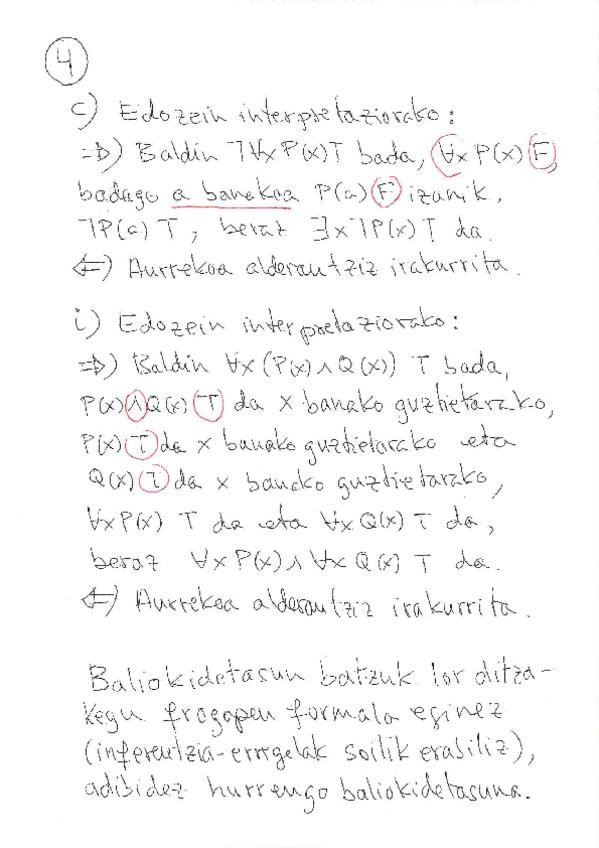 4
c) Edozein interpretaziorako:
⇒) Baldin ¬∀x P(x) T bada, ∀x P(x) F,
badago a banakoa P(a) F izanik,
¬P(a) T, beraz ∃x ¬P(x) T da.
⇐) Aurrekoa alderantziz irakurrita.
i) Edozein interpretaziorako:
⇒) Baldin ∀x (P(x) ∧ Q(x)) T bada,
P(x) ∧ Q(x) T da x banako guztietarako,
P(x) T da x banako guztietarako eta
Q(x) T da x banako guztietarako,
∀x P(x) T da eta ∀x Q(x) T da,
beraz ∀x P(x) ∧ ∀x Q(x) T da.
⇐) Aurrekoa alderantziz irakurrita.
Baliokidetasun batzuk lor ditza-
kegu frogapen formala eginez
(inferentzia-erregelak soilik erabiliz),
adibidez hurrengo baliokidetasuna.